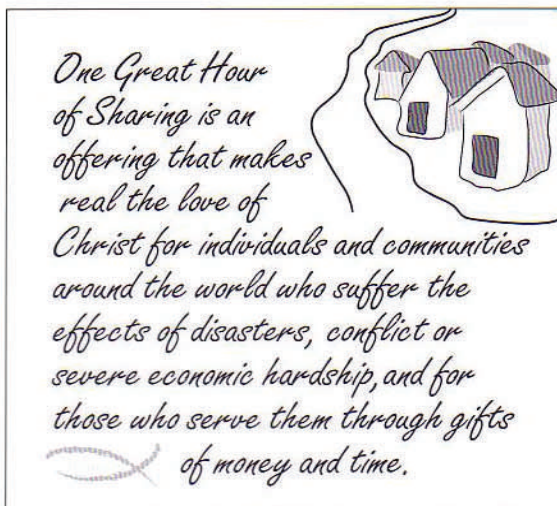 One Great Hour
of Sharing is an
offering that makes
real the love of
Christ for individuals and communities
around the world who suffer the
effects of disasters, conflict or
severe economic hardship, and for
those who serve them through gifts
of money and time.